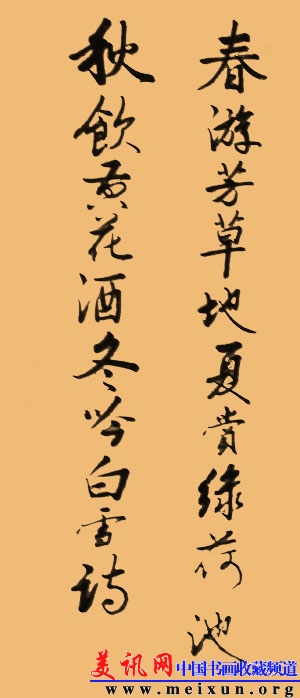 春游芳草地夏赏绿荷池
秋飲黄花酒冬吟白雪诗
美讯网 中国书画收藏频道
www.meixun.org